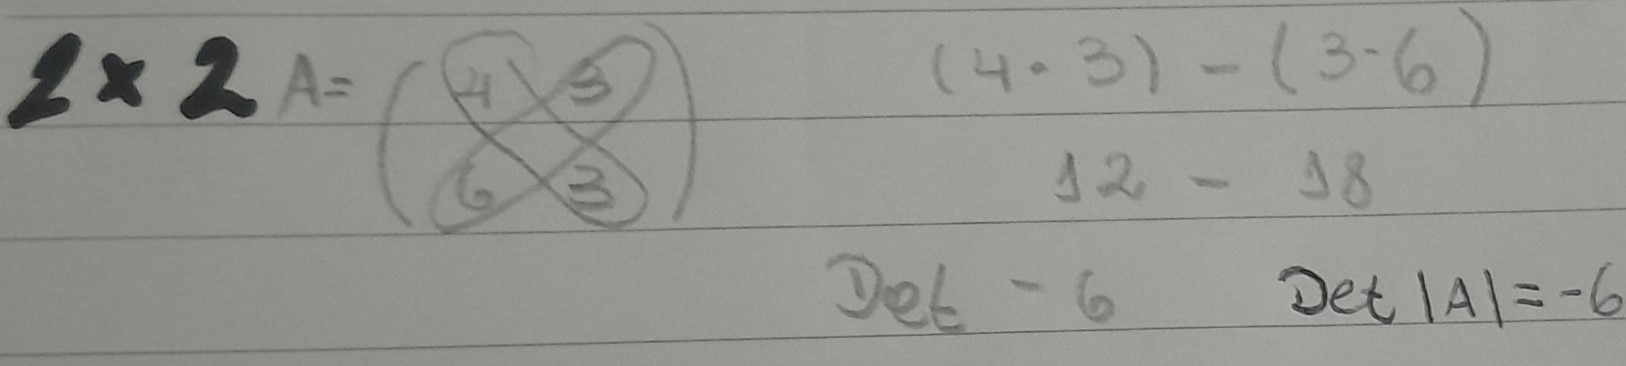 2 x 2 A = (4 3 (4 · 3) - (3 · 6)
6 3) 12 - 18
Det - 6 Det |A| = -6